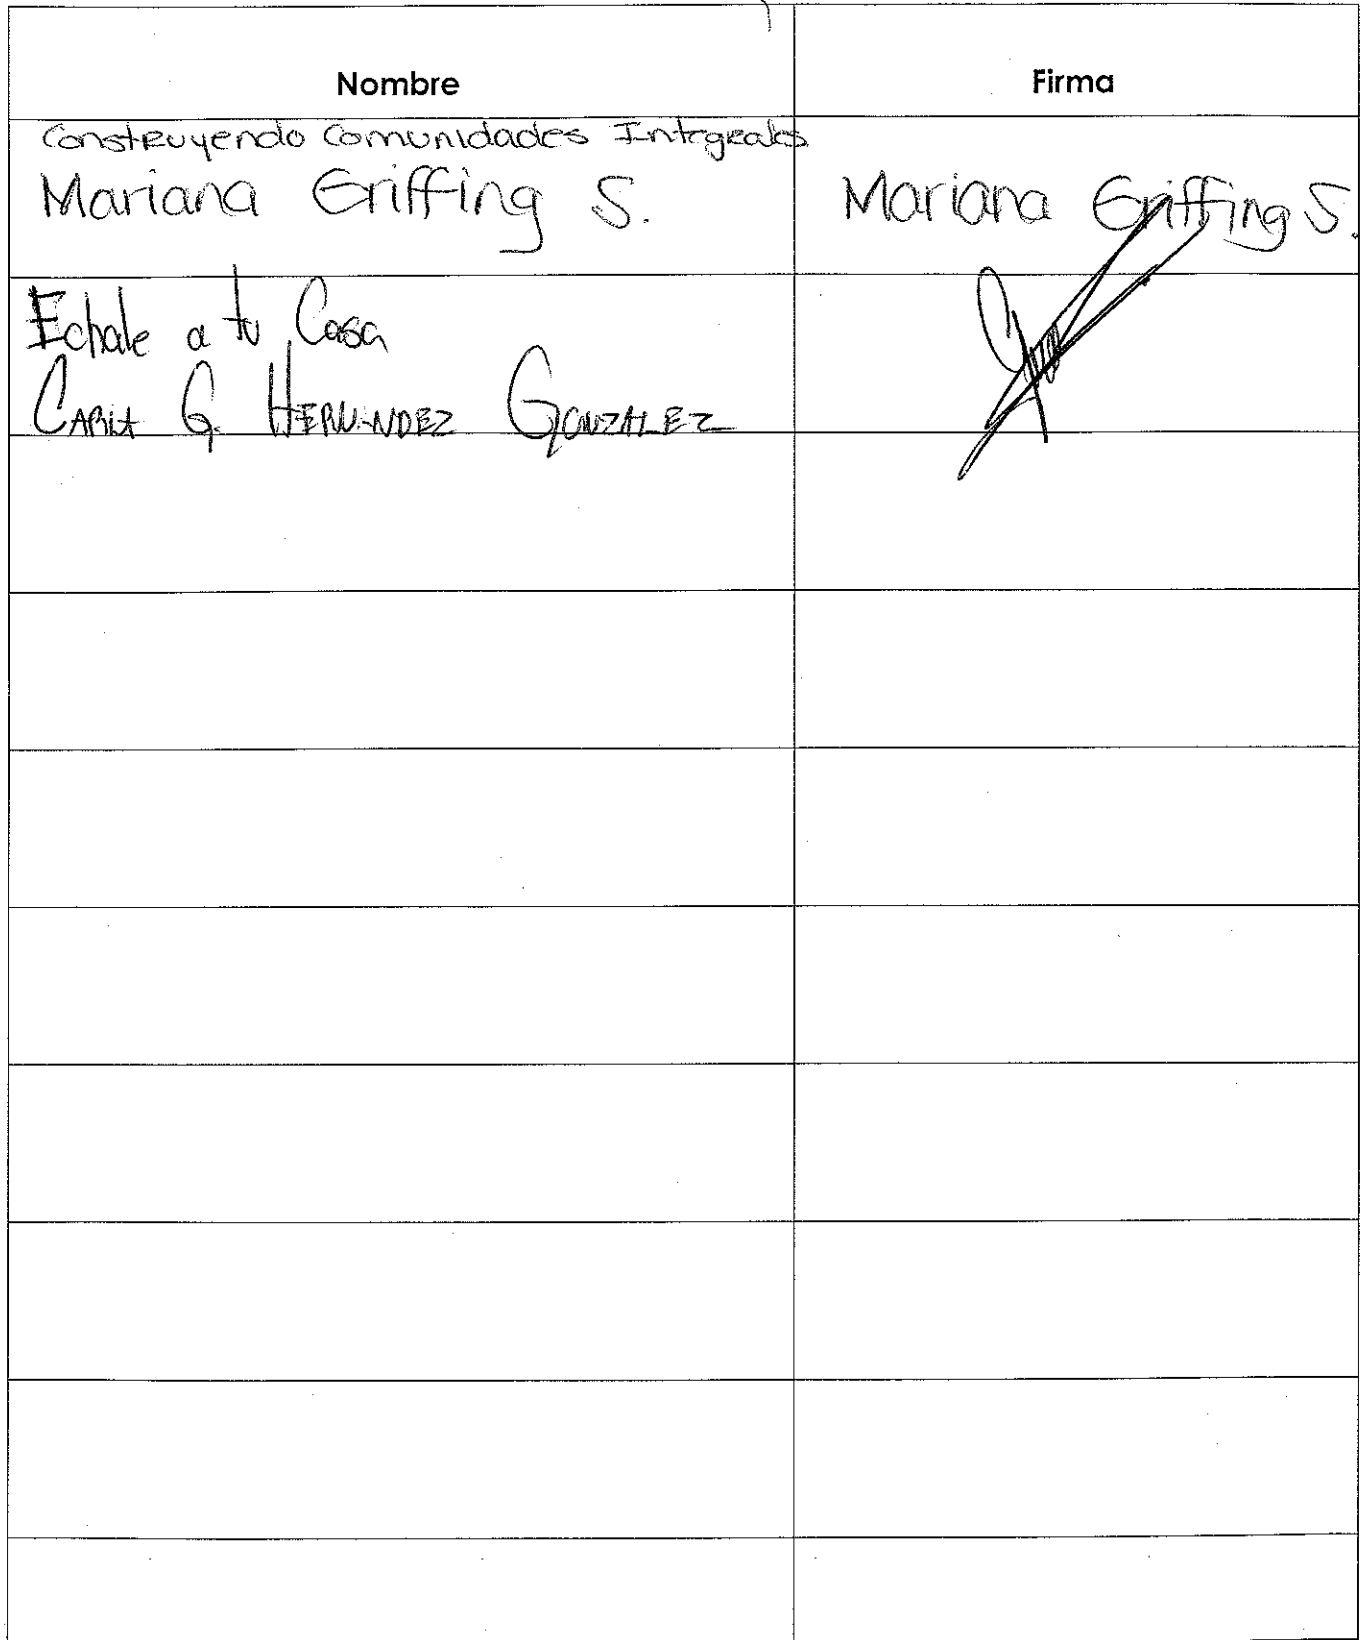 Nombre Firma
Construyendo Comunidades Integrales
Mariana Griffing S. Mariana Griffing S.
Echale a tu Casa
CARLA G. HERNANDEZ GONZALEZ